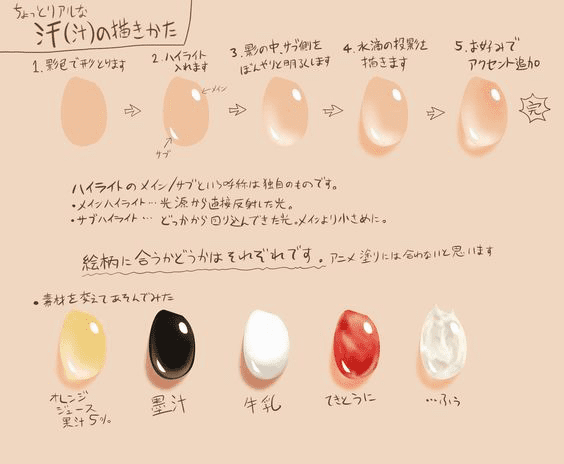 ちょっとリアルな
汗(汁)の描きかた
1.影色で形とります
2.ハイライト
入れます
メイン
サブ
3.影の中、サブ側を
ぼんやりと明るくします
4.水滴の投影を
描きます
5.お好みで
アクセント追加
完
ハイライトのメイン/サブという呼称は独自のものです。
・メインハイライト…光源から直接反射した光。
・サブハイライト…どっかから回り込んできた光。メインより小さめに。
絵柄に合うかどうかはそれぞれです。アニメ塗りには合わないと思います
・素材を変えてあそんでみた
オレンジ
ジュース
果汁5%
墨汁
牛乳
てきとうに
…ふぅ